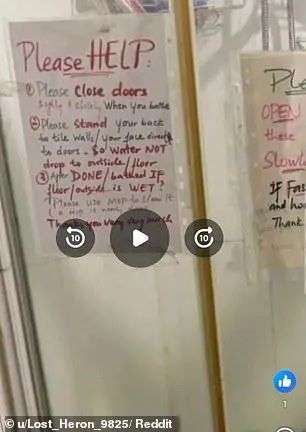 Please HELP:
① Please Close doors
When you bathe
② Please Stand your back
to tile walls/your face direct
to doors. So water NOT
drop to outside/floor
③ After DONE/bathed IF
floor/outside is WET?
Please use MOP to clean it
Thank you very very much
Ple
OPEN
these
Slowl
IF Fas
and
Thank
10
10
1
© u/Lost_Heron_9825/ Reddit